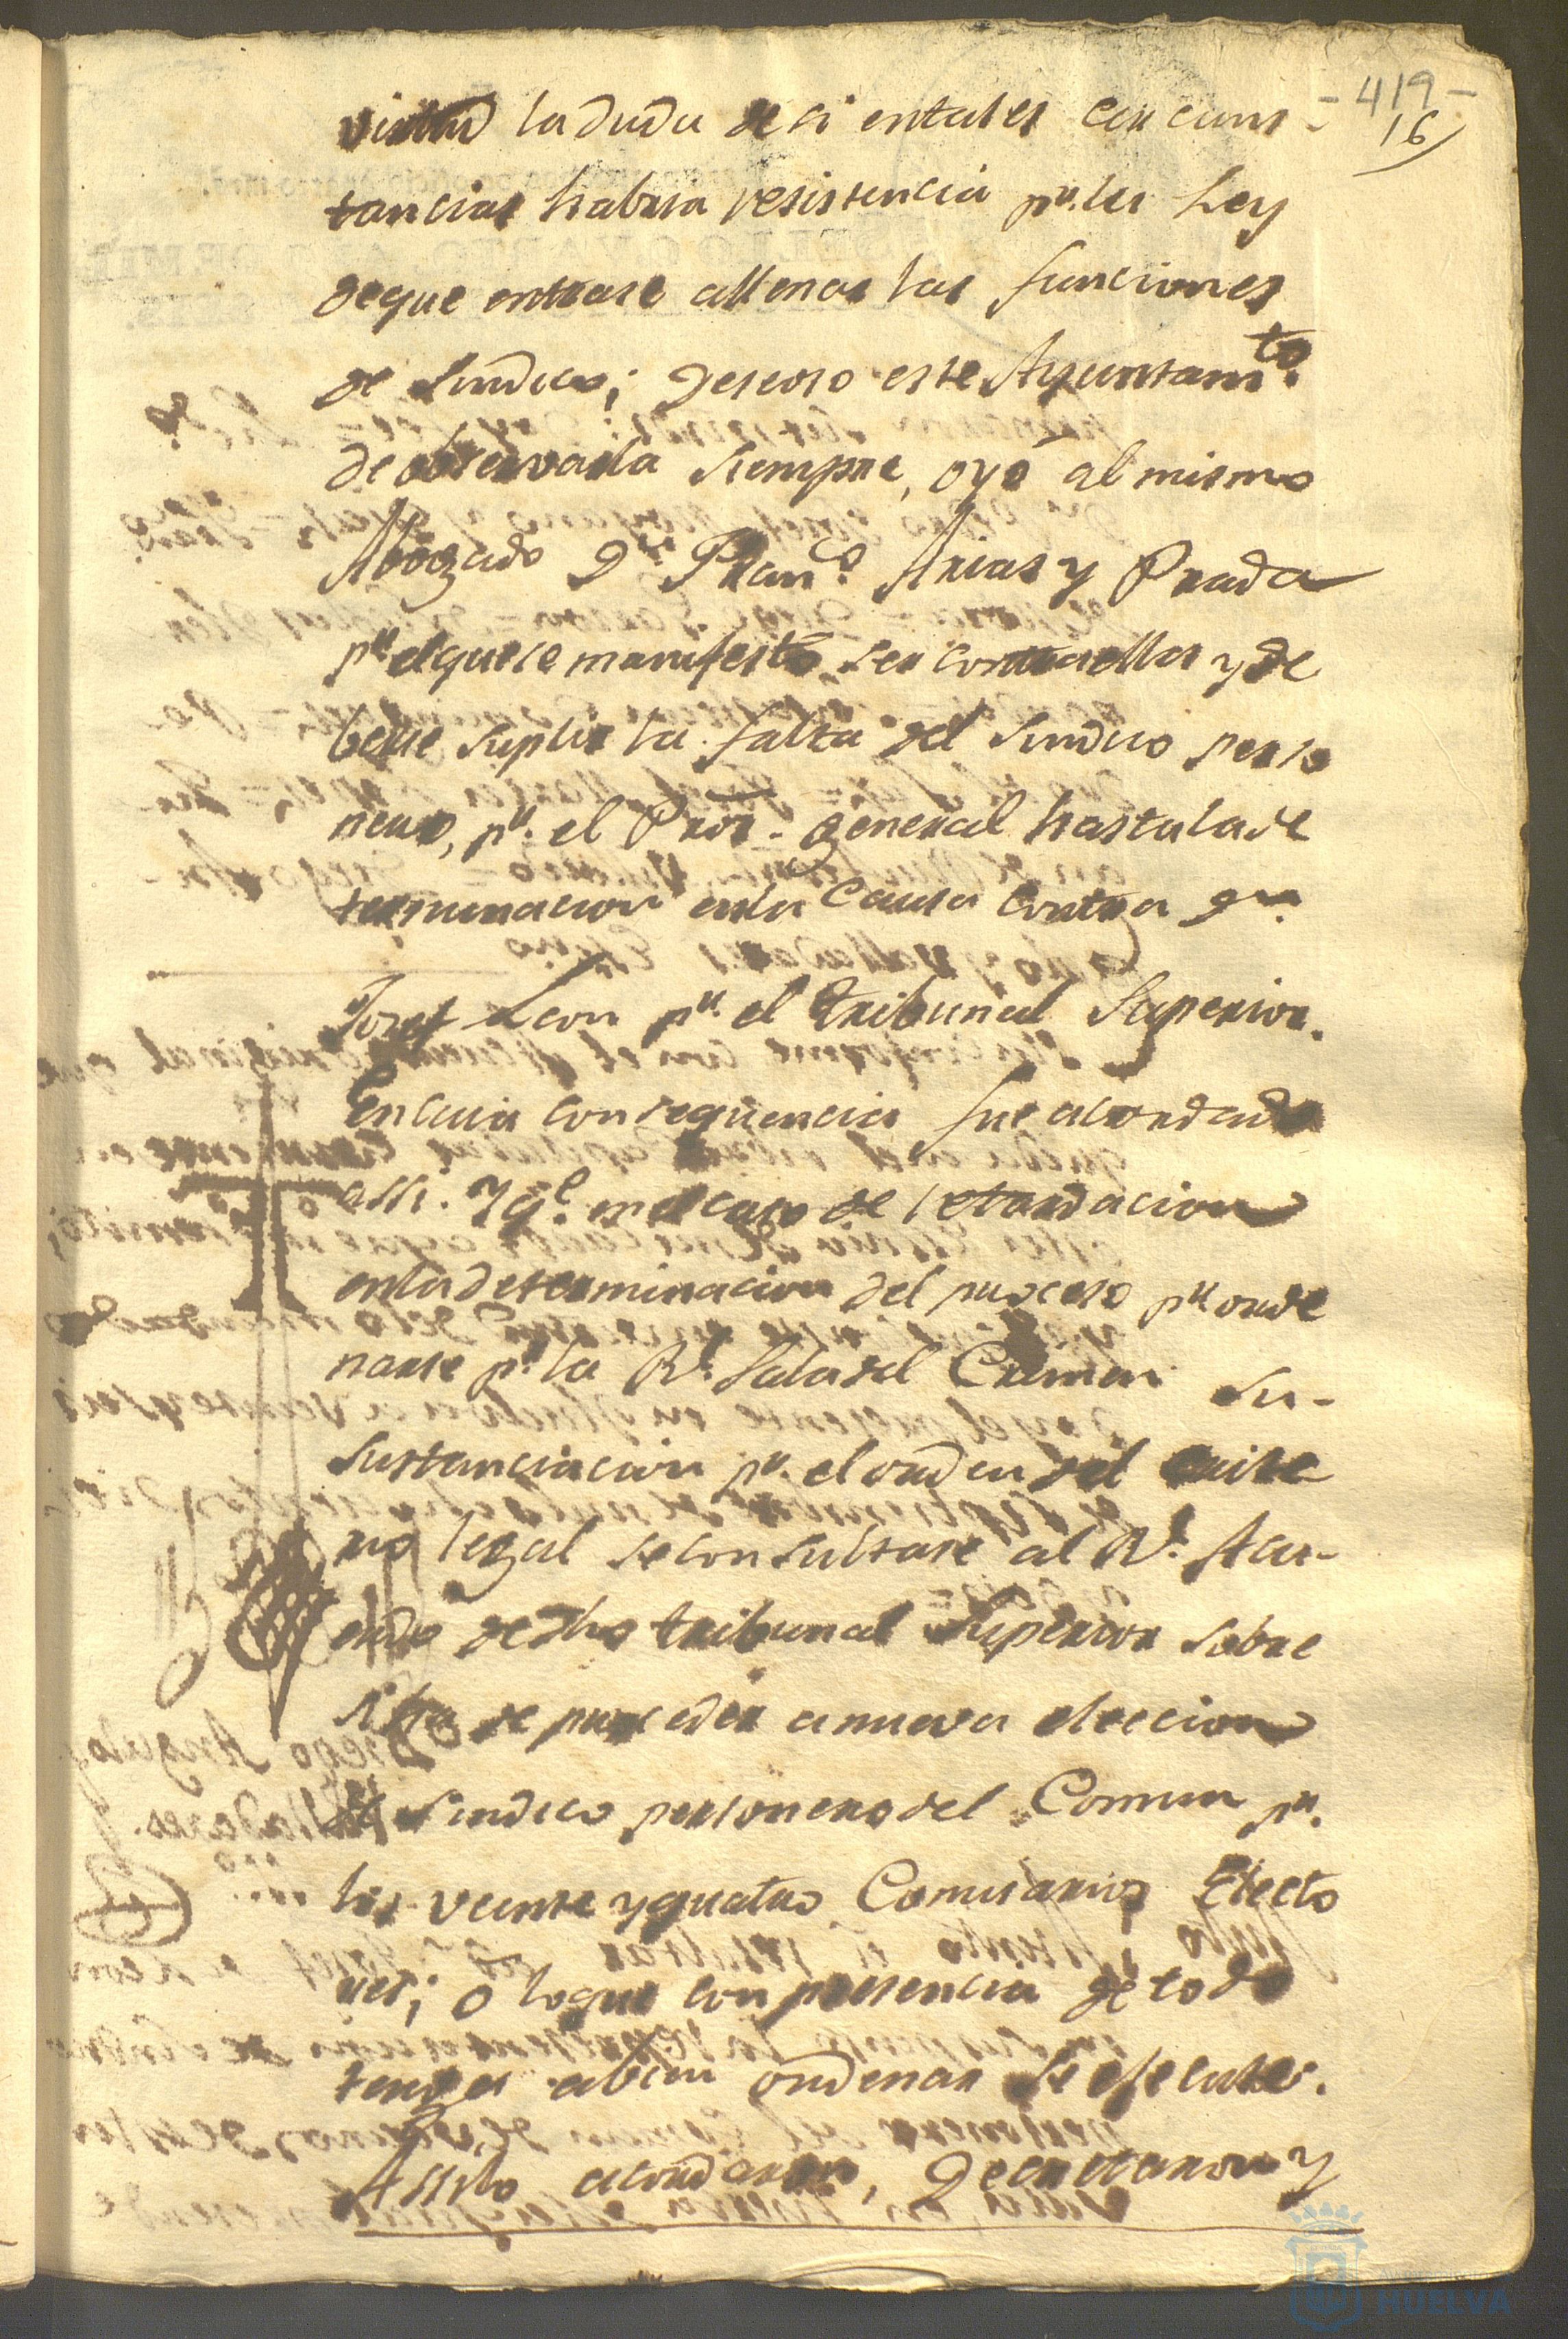 - 419 -
16
virtud la duda de si entales circuns-
tancias habria resistencia pr. la Ley
deque entrase allenar las funciones
de Sindico; deseoso este Ayuntamto.
de observarla siempre, oyó al mismo
Abogado Dn. Franco. Arias y Prada
pr. elquese manifestó ser contraellas y de
berse suplir la falta del Sindico perso
nero, pr. el Pror. general hastalade
terminacion enla Causa contra Dn.
Josef Leon pr. el tribunal Superior.
En cuia consequencia fue acordado
assi. Y qe. enelcaso de retardacion
enladeterminacion del proceso pr. orde
narse pr. la Rl. Saladel Crimen su-
sustanciacion pr. el orden del
legal seconsultase al Rl. Acu-
erdo de dho tribunal Superior sobre
si ha de proceder anueva eleccion
de Sindico personerodel Comun pr.
los veinte yquatro Comisarios Electo
res; o loque con presencia de todo
tenga abien ordenar se execute.
Assilo acordaron, Decretaron y
HUELVA